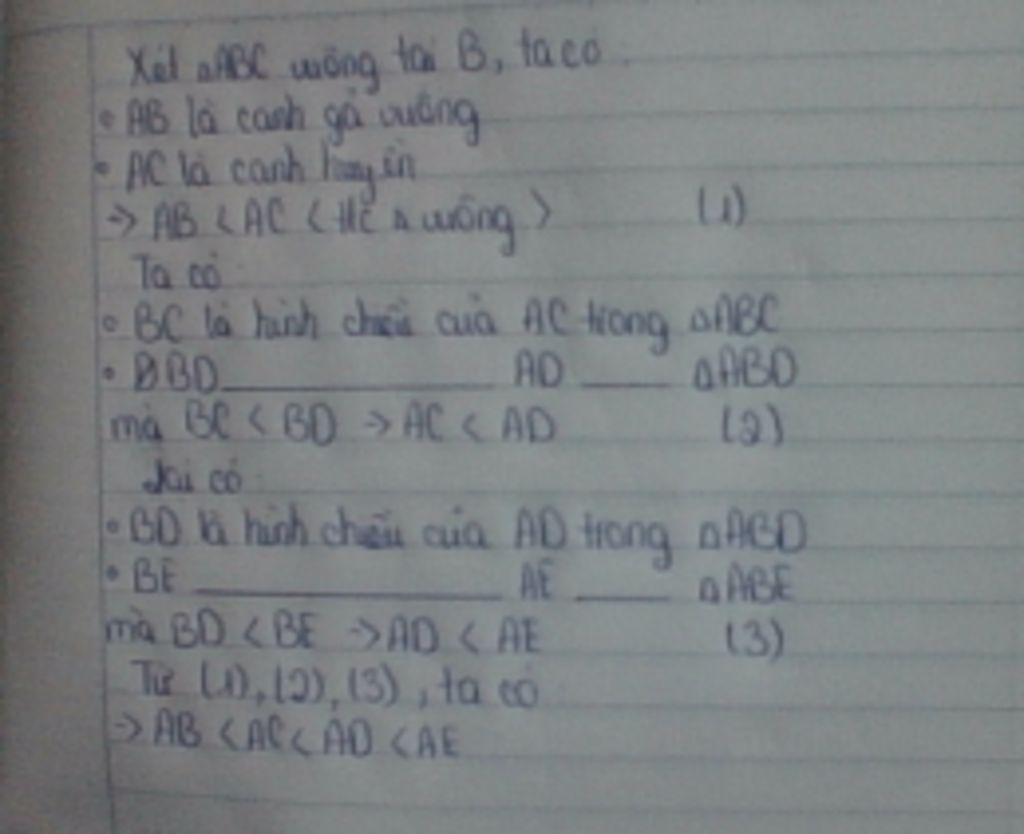 Xét ΔABC vuông tại B, ta có:
• AB là cạnh gó vuông
• AC là cạnh huyền
→ AB < AC < Hệ Δ vuông > (1)
Ta có:
• BC là hình chiếu của AC trong ΔABC
• BBD ______ AD ___ ΔABD
mà BC < BD → AC < AD (2)
Lại có:
• BD là hình chiếu của AD trong ΔABD
• BE ______ AE ___ ΔABE
mà BD < BE → AD < AE (3)
Từ (1), (2), (3), ta có
→ AB < AC < AD < AE